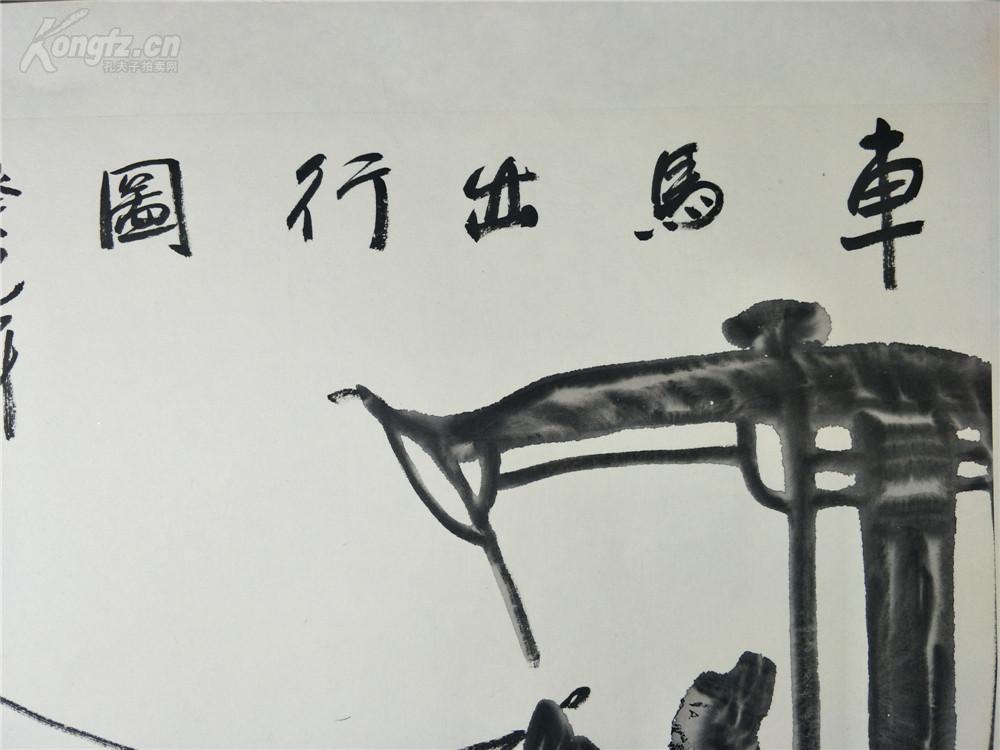 Kongfz.cn
孔夫子拍卖网
車馬出行圖